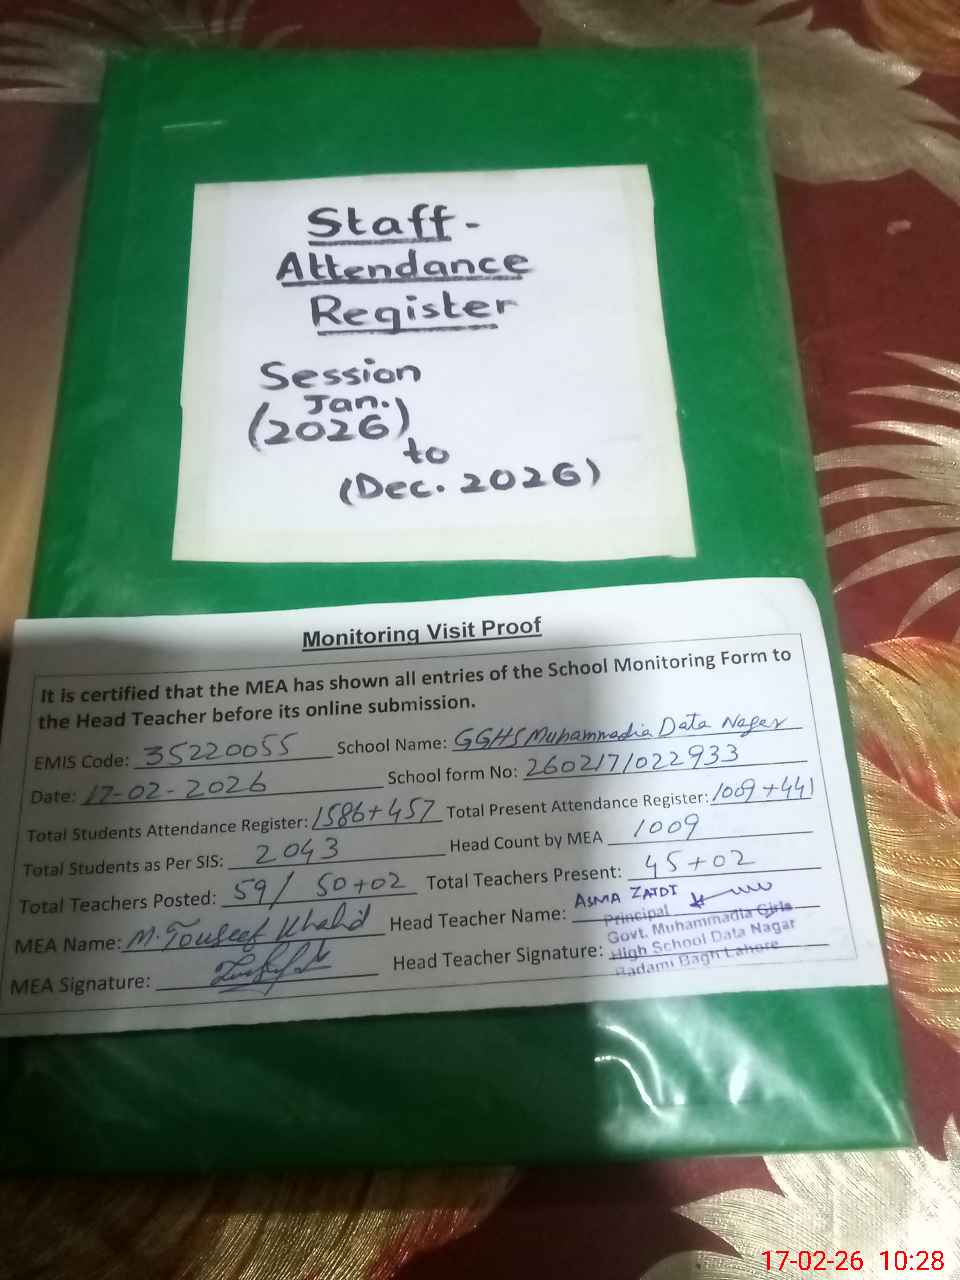 Staff-
Attendance
Register
Session
Jan.
(2026)
to
(Dec. 2026)
Monitoring Visit Proof
It is certified that the MEA has shown all entries of the School Monitoring Form to
the Head Teacher before its online submission.
EMIS Code: 35220055 School Name: GGHS Muhammadia Data Nagar
Date: 17-02-2026 School form No: 260217/022933
Total Students Attendance Register: 1586+457 Total Present Attendance Register: 1009+441
Total Students as Per SIS: 2043 Head Count by MEA 1009
Total Teachers Posted: 59/ 50+02 Total Teachers Present: 45+02
MEA Name: M. Touseef Khalid Head Teacher Name: ASMA ZAIDI
MEA Signature: Head Teacher Signature:
Principal
Govt. Muhammadia Girls
High School Data Nagar
Badami Bagh Lahore
17-02-26 10:28